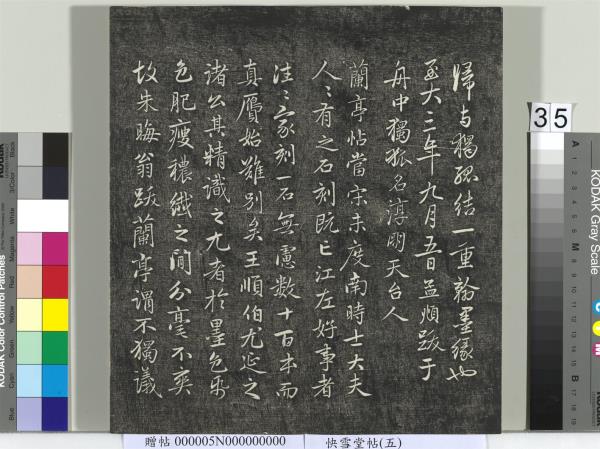 歸與獨孤結一重翰墨緣也
至大三年九月五日孟頫跋于
舟中獨孤名淳朋天台人
蘭亭帖當宋未度南時士大夫
人々有之石刻既亡江左好事者
往々家刻一石無慮數十百本而
真贋始難別矣王順伯尤延之
諸公其精識之尤者於墨色紙
色肥瘦穠纖之間分毫不爽
故朱晦翁跋蘭亭謂不獨議
35
KODAK Color Control Patches
Blue
Cyan
Green
Yellow
Red
Magenta
White
3/Color
Black
KODAK Gray Scale
C
Y
M
A 1 2 3 4 5 6 M 8 9 10 11 12 13 14 15 B 17 18 19
贈帖 000005N000000000 快雪堂帖(五)